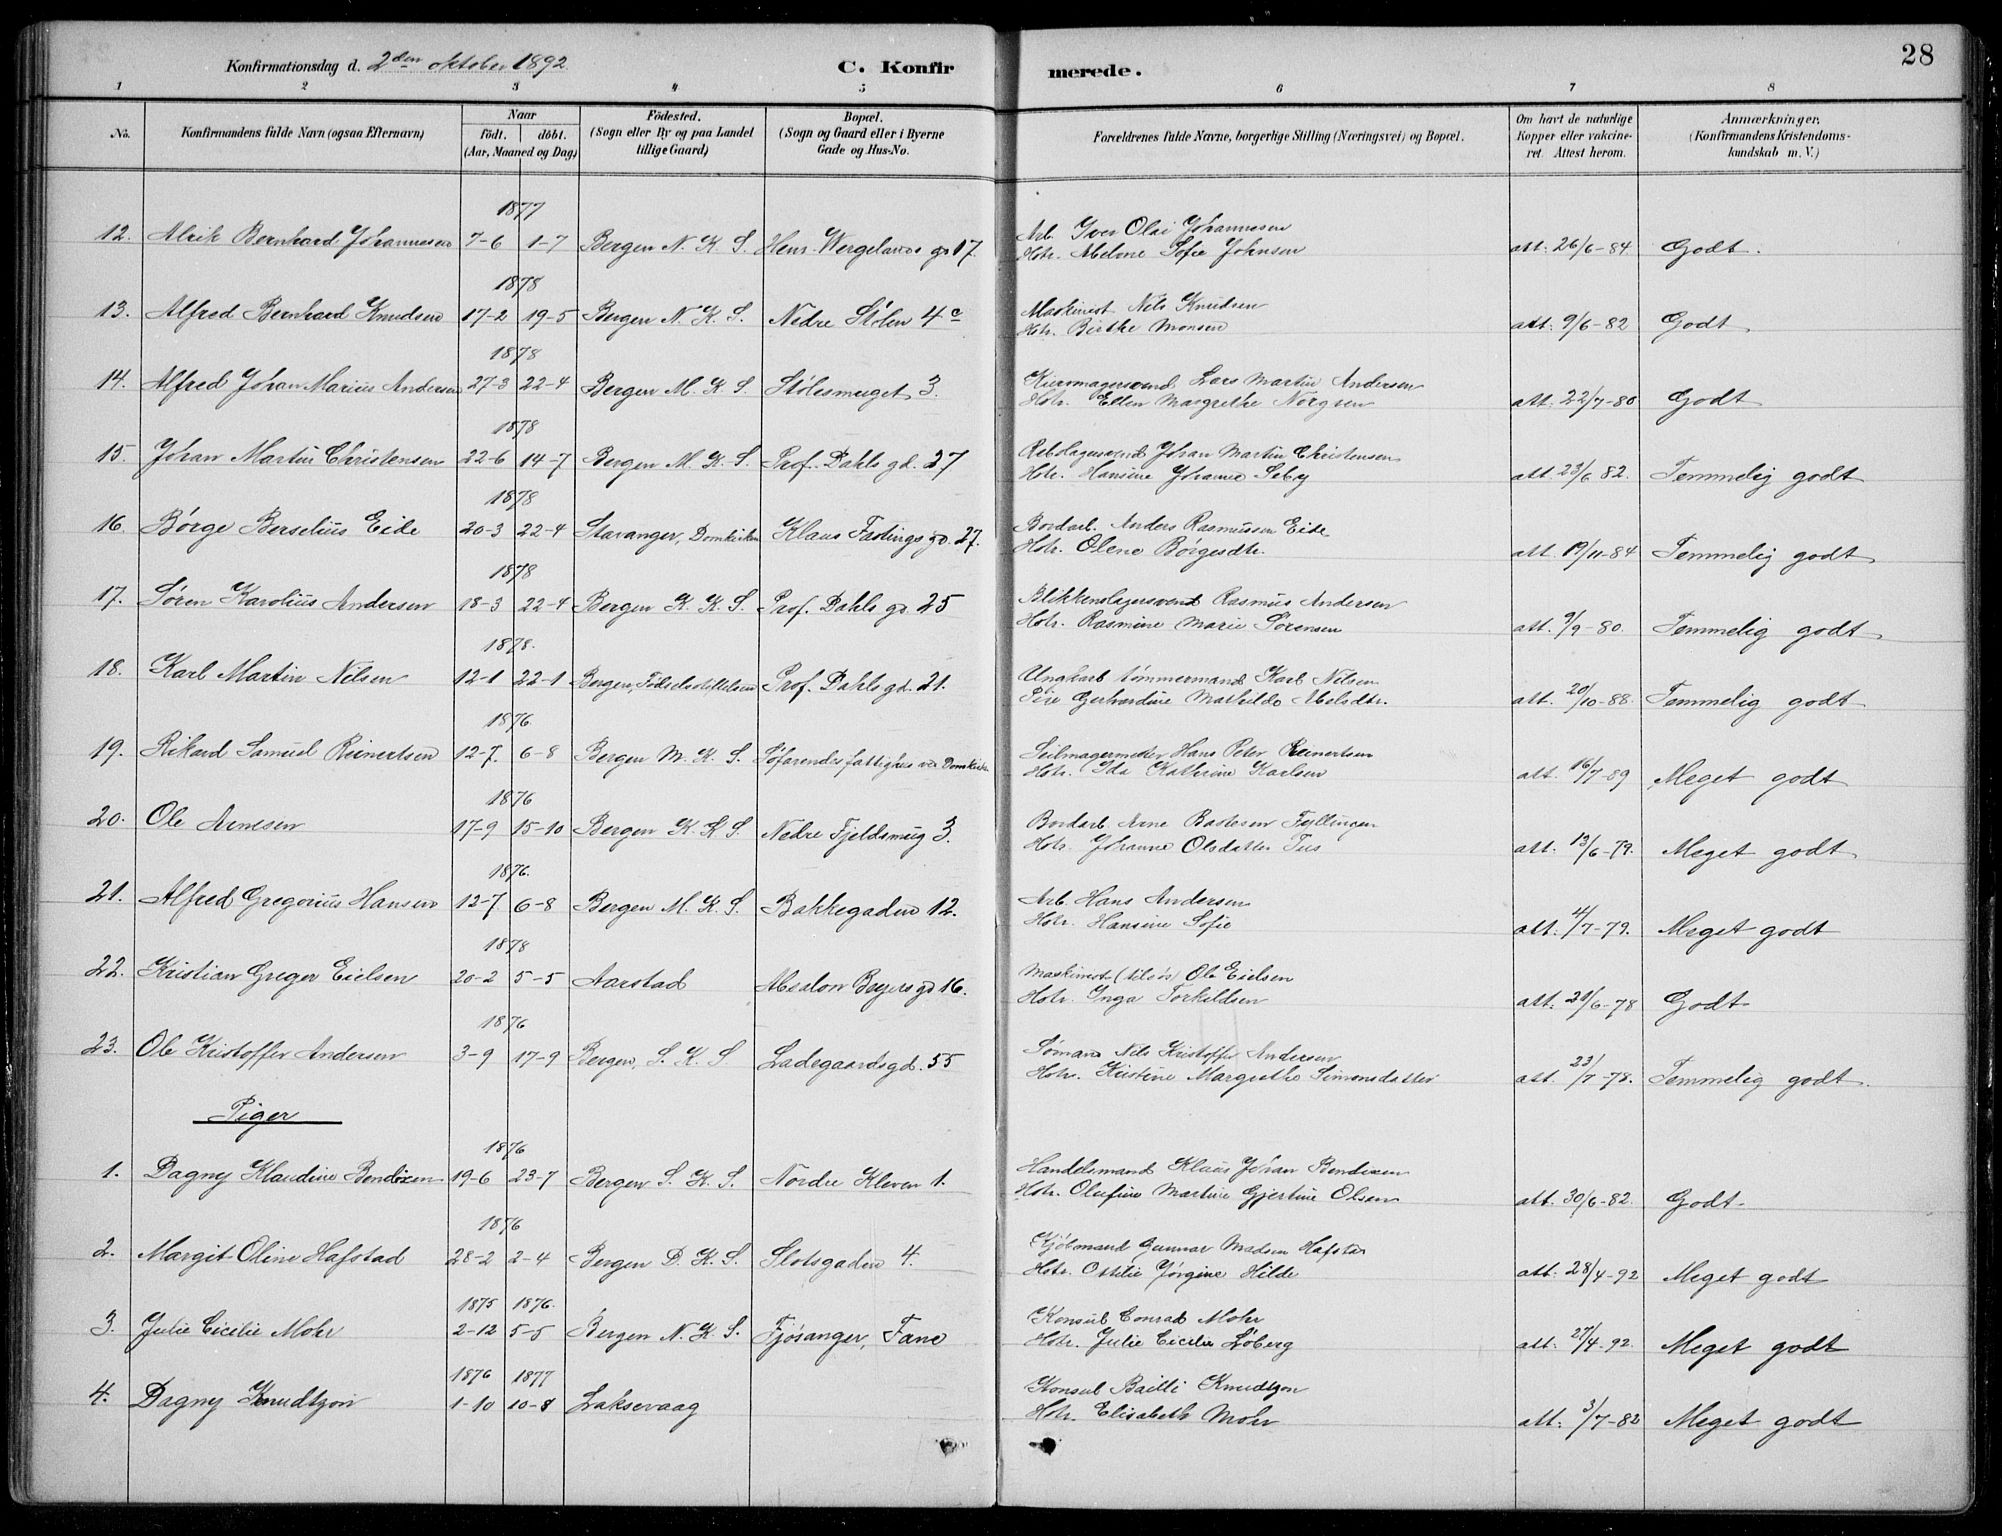 28
Konfirmationsdag d. 2den oktober 1892
C. Konfirmerede.
1 2 3 4 5 6 7 8
No.
Konfirmandens fulde Navn (ogsaa Efternavn)
Naar
födt. döbt.
(Aar, Maaned og Dag)
Födested.
(Sogn eller By og paa Landet
tillige Gaard)
Bopæl.
(Sogn og Gaard eller i Byerne
Gade og Hus-No.
Forældrenes fulde Navne, borgerlige Stilling (Næringsvei) og Bopæl.
Om havt de naturlige
Kopper eller vakcine-
ret. Attest herom.
Anmærkninger.
(Konfirmandens Kristendoms-
kundskab m. V.)
1877
12. Alrik Bernhard Johannesen 7-6 1-7 Bergen N. K. S. Henr. Wergelands gd 17.
Arb. Iver Olai Johannesen
Hstr. Abelone Sofie Johnsen
att. 26/6-84 Godt.
1878
13. Alfred Bernhard Knudsen 17-2 19-5 Bergen N. K. S. Nedre Stølen 4c
Maskinist Nils Knudsen
Hstr. Birthe Monsen
att: 9/6-82 Godt
1878
14. Alfred Johan Marius Andersen 27-3 22-4 Bergen M. K. S. Stølesmuget 3.
Lars Martin Andersen
Hstr. Ellen Margrethe
att: 22/7-80 Godt
1878
15. Johan Martin Christensen 22-6 14-7 Bergen M. K. S. Prof. Dahls gd. 27
Rebslagersvend Johan Martin Christensen
Hstr. Hansine Johanne Seby
att. 23/6 82. Temmelig godt
1878
16. Börge Berselius Eide 20-3 22-4 Stavanger, Domkirken Klaus Fastings gd. 27.
Bordarb. Anders Rasmussen Eide
Hstr. Olene Börgesdtr.
att. 19/11-84 Temmelig godt
1878
17. Sören Karolius Andersen 18-3 22-4 Bergen K. K. S. Prof. Dahls gd. 25
Blikkenslagersvend Rasmus Andersen
Hstr. Rasmine Marie Sörensen
att. 9/9-80. Temmelig godt
1878.
18. Karl Martin Nilsen 12-1 22-1 Bergen, Födselsstiftelsen Prof. Dahls gd. 21.
Ungkarl tömmermand Karl Nilsen
Pige Gerhardine Mathilde Abelsdtr.
att. 20/10-88. Temmelig godt
1876.
19. Rikard Samuel Reinertsen 12-7. 6-8 Bergen M. K. S. Söfarendes fattighus ved Domkirken
Seilmagermester Hans Peter Reinertsen
Hstr. Ida Kathrine Karlsen
att. 16/7-89 Meget godt
1876
20. Ole Arnesen 17-9 15-10 Bergen K. K. S. Nedre Fjeldsmug 3.
Bordarb. Arne Bastesen Fyllingen
Hstr. Johanne Olsdatter Tus
att. 13/6-79. Meget godt
1876.
21. Alfred Gregorius Hansen 12-7 6-8 Bergen M. K. S. Bakkegaden 12.
Arb. Hans Andersen
Hstr. Hansine Sofie
att. 4/7-79. Meget godt
1878
22. Kristian Greger Eielsen 20-2 5-5 Aarstad Absalon Beyers gd 16.
Maskinist (tilsös) Ole Eielsen
Hstr. Inga Torkildsen
att: 21/6-78 Godt
1876
23. Ole Kristoffer Andersen 3-9 17-9 Bergen, S. K. S Ladegaardsgd. 55
Sömand Nils Kristoffer Andersen
Hstr. Kristine Margrethe Simonsdatter
att. 23/7-78. Temmelig godt.
Piger
1876
1. Dagny Klaudine Bendixen 19-6 23-7 Bergen S. K. S. Nordre Kleven 1.
Handelsmand Klaus Johan Bendixen
Hstr. Olufine Martine Gjertine Olsen
att. 30/6-82. Godt-
1876
2. Margit Oline Hafstad 28-2 2-4 Bergen D. K. S. Slotsgaden 4.
Kjöbmand Gunnar Madsen Hafstad
Hstr. Ottilie Jörgine Hilde
att. 28/4-92 Meget godt
1875 1876.
3. Julie Cicilie Mohr 2-12 5-5 Bergen N. K. S. Fjösanger, Fane
Konsul Conrad Mohr
Hstr. Julie Cicilie Löberg
att: 27/4-92. Meget godt
1876 1877
4. Dagny Knudtzon 1-10 10-8 Laksevaag
Konsul Bailli Knudtzon
Hstr. Elisabeth Mohr
att: 3/7-82 Meget godt